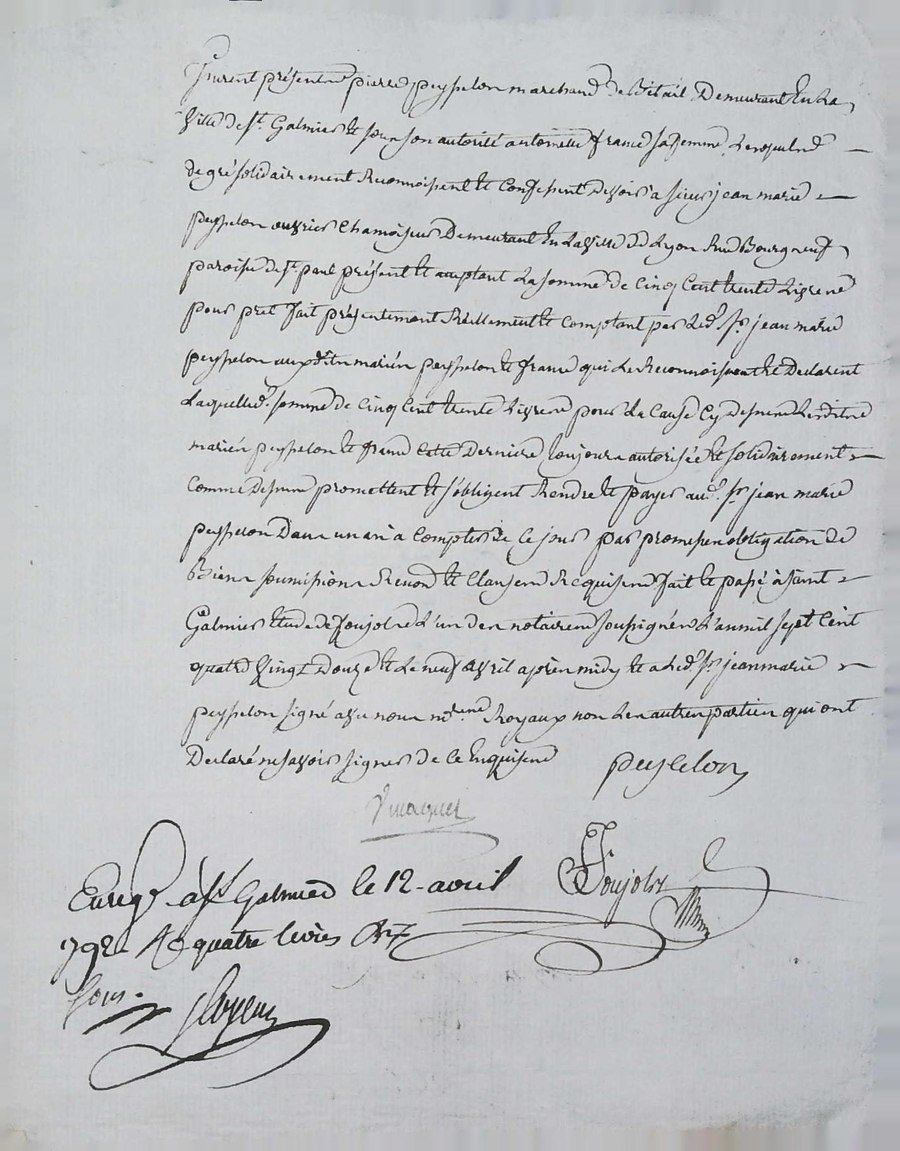 furent présents pierre peysselon marchand de Bétail Demeurant En La
Ville de st. Galmier Et sous son autorité autorisée france sa femme, Lesquels
de gré solidairement Reconnoissent Et Confessent Devoir a sieur jean marie
peysselon ouvrier Chamoiseur Demeurant En La Ville de Lyon Rue Bourgneuf
paroisse de st. paul présent Et acceptant La somme de Cinq Cent trente Livres
pour pret fait présentement Réellement Et Comptant par Led. sr. jean marie
peysselon auxdits mariés peysselon Et france qui Le Reconnoissent Et Declarent
Laquelle d. somme de Cinq Cent trente Livres pour La Cause Cy dessus Lesdits
mariés peysselon Et france Cette Derniere toujours autorisée Et solidairement
Comme dessus promettent Et s'obligent Rendre Et payer aud. sr. jean marie
peysselon Dans un an à Compter de Ce jour par promesse obligation de
Biens soumissions Renonc. Et Clauses Requises fait Et passé à saint
Galmier Etude de foujols L'un des notaires soussignés L'an mil sept Cent
quatre Vingt Douze Et Le neuf avril après midy Et a Led. sr. jean marie
peysselon signé avec nous nres Royaux non Les autres parties qui ont
Declaré ne savoir signer de Ce Enquises
peyselon
foujols
Enreg. à st. Galmier le 12 avril
792 quatre livres
sous.